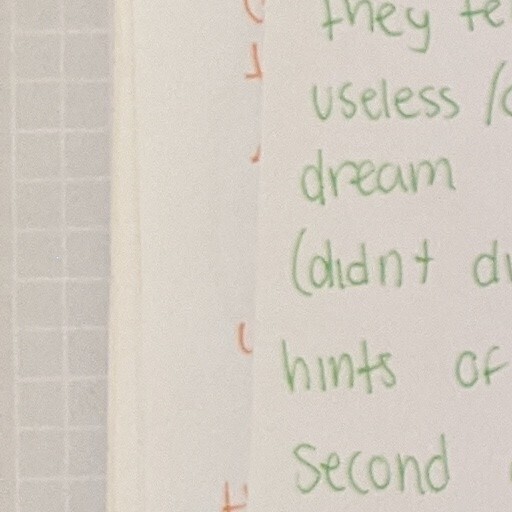 they
useless
dream
(didnt
hints of
second